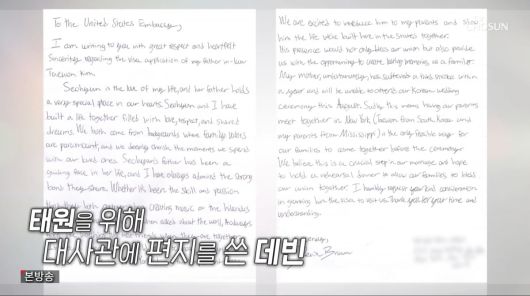 To the United States Embassy,
I am writing to you with great respect and heartfelt
sincerity regarding the visa application of my father-in-law
Taewon Kim.
Seohyun is the love of my life, and her father holds
a very special place in our hearts. Seohyun and I have
built a life together filled with love, respect, and shared
dreams. We both come from backgrounds where family values
are paramount, and we deeply cherish the moments we spend
with our loved ones. Seohyun's father has been a
guiding force in her life, and I have always admired the strong
bond they share. Whether it's been the skill and passion
creating music or the
We are excited to introduce him to my parents and show
him the life we've built here in the States together.
His presence would not only bless our union but also provide
us with the opportunity to unite before becoming as a family.
My mother, unfortunately, has suffered a third stroke within
a year and will be unable to attend our Korean wedding
ceremony this August. Sadly, this means having our parents
meet together in New York (Taewon from South Korea and
my parents from Mississippi) is the only feasible way for
our families to come together before the ceremony.
We believe this is a crucial step in our marriage and hope
to hold a rehearsal dinner to allow our families to bless
our union together. I humbly request your kind consideration
in granting him the visa to visit us. Thank you for your time and
understanding.
CHOSUN
태원을 위해
대사관에 편지를 쓴 데빈
본방송